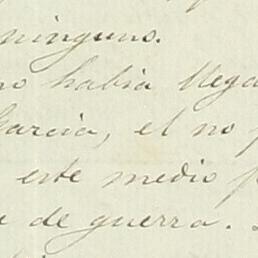 ninguno.
no habia llega
Garcia, el no p
este medio p
e de guerra.